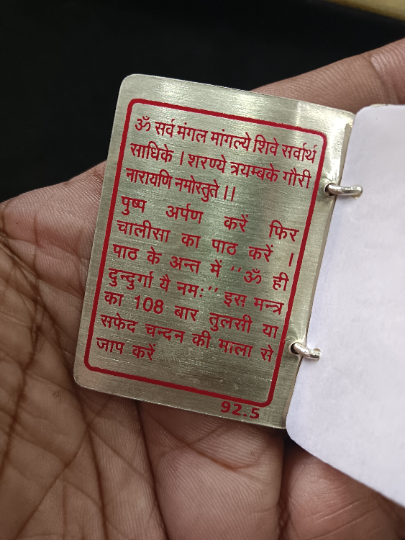 ॐ सर्व मंगल मांगल्ये शिवे सर्वार्थ
साधिके । शरण्ये त्रयम्बके गौरी
नारायणि नमोस्तुते ।।
पुष्प अर्पण करें फिर
चालीसा का पाठ करें ।
पाठ के अन्त में ‘‘ॐ ही
दुन्दुर्गा यै नमः’’ इस मन्त्र
का 108 बार तुलसी या
सफेद चन्दन की माला से
जाप करें
92.5